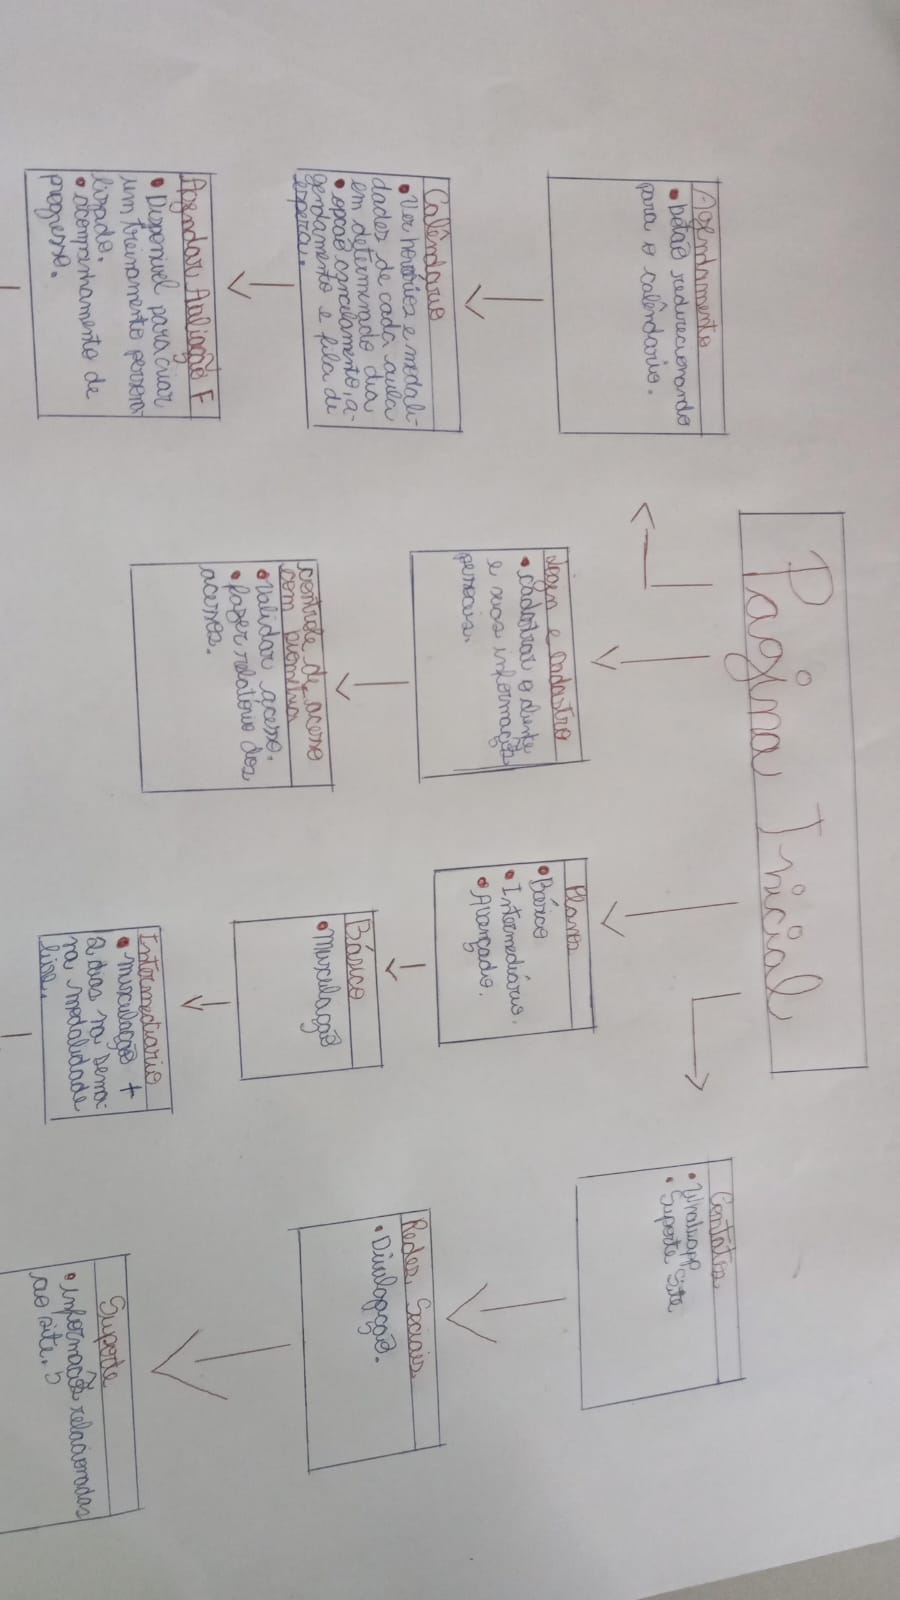 Pagina Inicial
Agendamento
• botão redirecionando
para o calêndario.
Calêndário
• Ver horários e modali-
dades de cada aula
em determinado dia
• opção cancelamento, a-
gendamento e fila de
espera.
Agendar Avaliação F
• Disponivel para criar
um treinamento persona-
lizado.
• acompanhamento de
progresso.
Login e cadastro
• cadastrar o cliente
e suas informações
pessoais.
controle de acesso
com biometria
• Validar acesso.
• fazer relatório dos
acessos.
Planos
• Básico
• Intermediário.
• Avançado.
Básico
• Musculação
Intermediario
• musculação +
2 dias na sema-
na modalidade
livre.
Contatos
• Whatsapp
• Suporte Site
Redes Sociais
• Divulgação.
Suporte
• informação relacionadas
ao site.